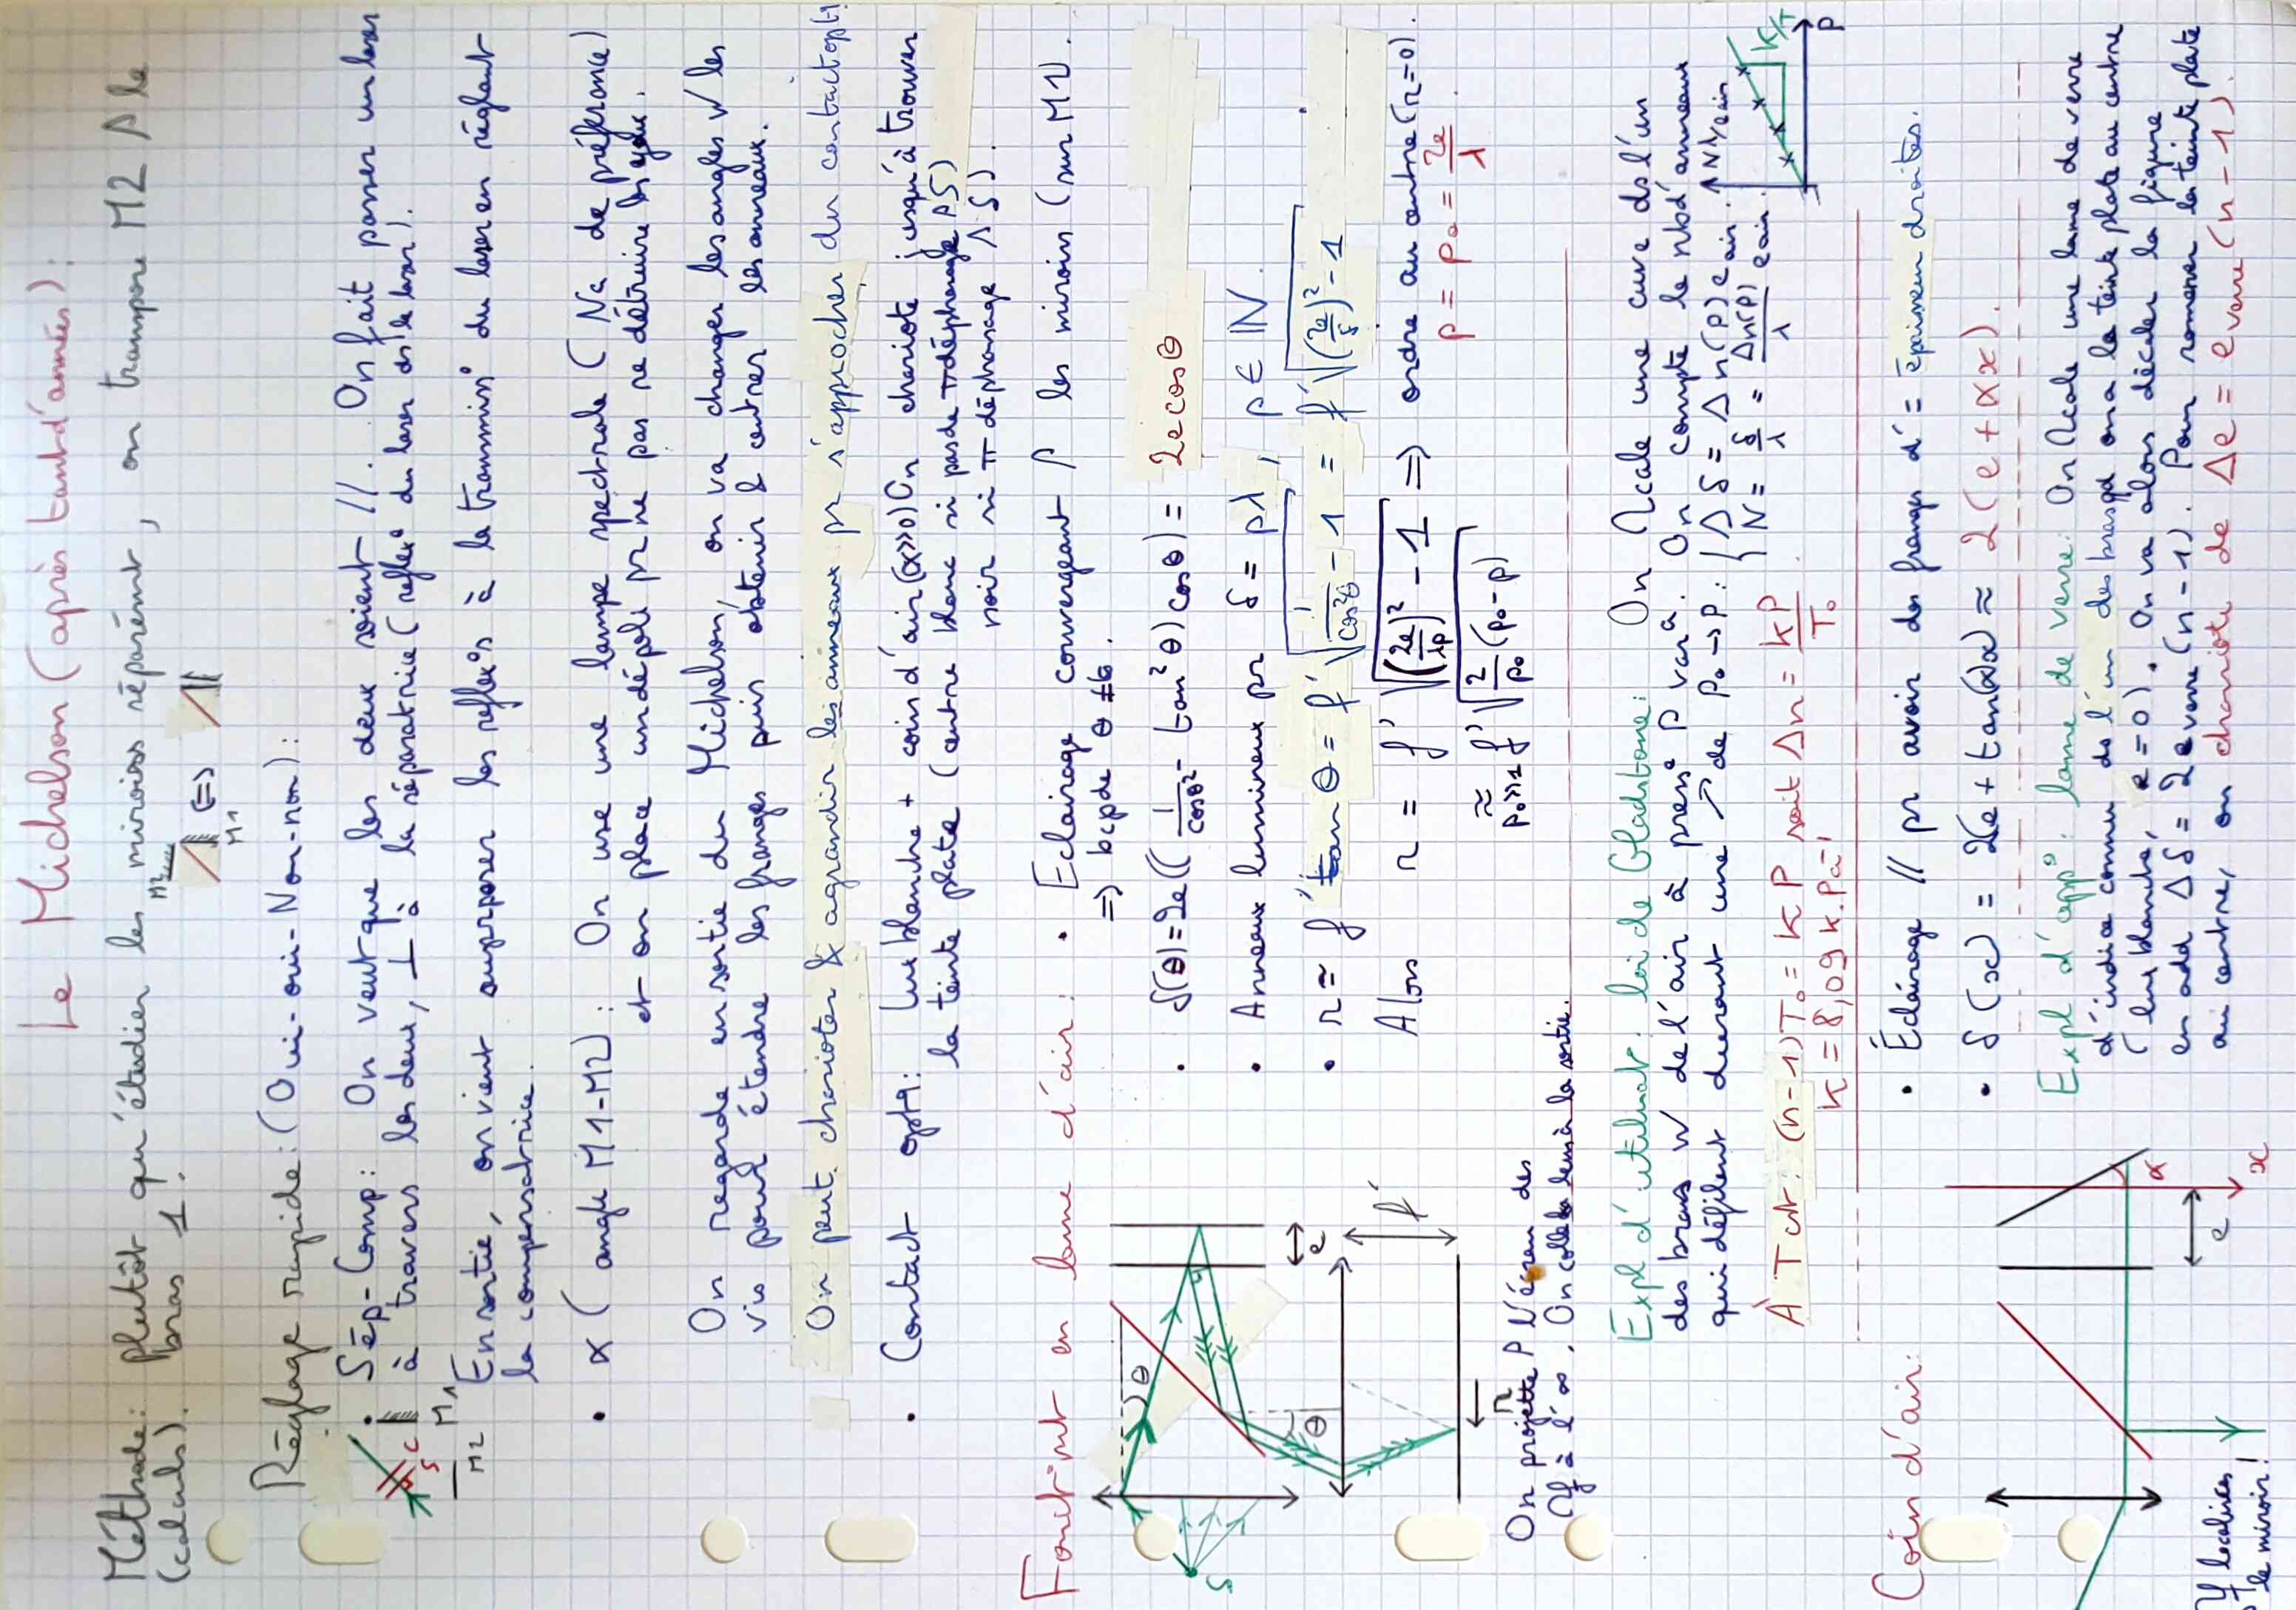 Le Michelson (après tant d'années) :
Méthode : Plutôt qu'étudier les miroirs séparément, on transpore M2 ds le
(calculs). bras 1.
M2
M1
<=>
Réglage rapide : (Oui-oui-Non-non) :
• Sép-Comp : On veut que les deux soient //. On fait passer un laser
à travers les deux, ⊥ à la séparatrice (reflex° du laser ds le laser).
S C M1
M2
En sortie, on vient superposer les reflex°s à la transmiss° du laser en réglant
la compensatrice.
• α (angle M1-M2) : On use une lampe spectrale (Na de préférence)
et on place un dépoli pr ne pas se détruire les yeux.
On regarde en sortie du Michelson, on va changer les angles √ les
vis pour étendre les franges puis obtenir & centrer les anneaux.
On peut charioter & agrandir les anneaux pr s'approcher du contact opt.
• Contact opt : lum blanche + coin d'air (α>>0) On chariote jusqu'à trouver
la teinte plate (centre blanc si pas de π déphasage ds S)
noir si π déphasage ds S).
Fonct-nt en lame d'air :
• Eclairage convergeant s les miroirs (sur M1).
=> bcp de θ ≠
• δ(θ) = 2e((1/cosθ² - tan²θ) cosθ) = 2e cosθ
• Anneaux lumineux pr δ = pλ, p ∈ ℕ.
• r ≈ f' tanθ = f' √(1/cos²θ - 1) = f' √((2e/δ)² - 1)
Alors r = f' √((2e/λp)² - 1) => ordre au centre (r=0).
p = p₀ = 2e/λ.
≈ p₀>>1 f' √(2/p₀ (p₀-p))
S
θ
θ
e
f'
r
On projette l'écran des
à l'∞. On colle la lentille à la sortie.
Expl d'utilisat° : loi de Gladstone : On cale une cuve ds l'un
des bras w/ de l'air à press° P var. On compte le nb d'anneaux
qui défilent durant une ↗ de P₀ → P : { Δδ = Δn(P) e air.
N = δ/λ = Δn(P)/λ e air.
Nλ/e air
K/T
P
À T cst : (n-1)T₀ = KP soit Δn = KP/T₀.
K = 8,09 K.Pa⁻¹
Coin d'air :
• Éclairage // pr avoir des franges d'= épaisseur droites.
• δ(x) = 2(e + tan(α)x) ≈ 2(e + αx).
Expl d'app° : lame de verre : On cale une lame de verre
d'indice connu ds l'un des bras qd on a la teinte plate au centre
(lum blanche, e=0). On va alors décaler la figure
en add Δδ = 2 e verre (n-1). Pour ramener la teinte plate
au centre, on chariote de Δe = e verre (n-1).
α
x
e
localisées
le miroir !